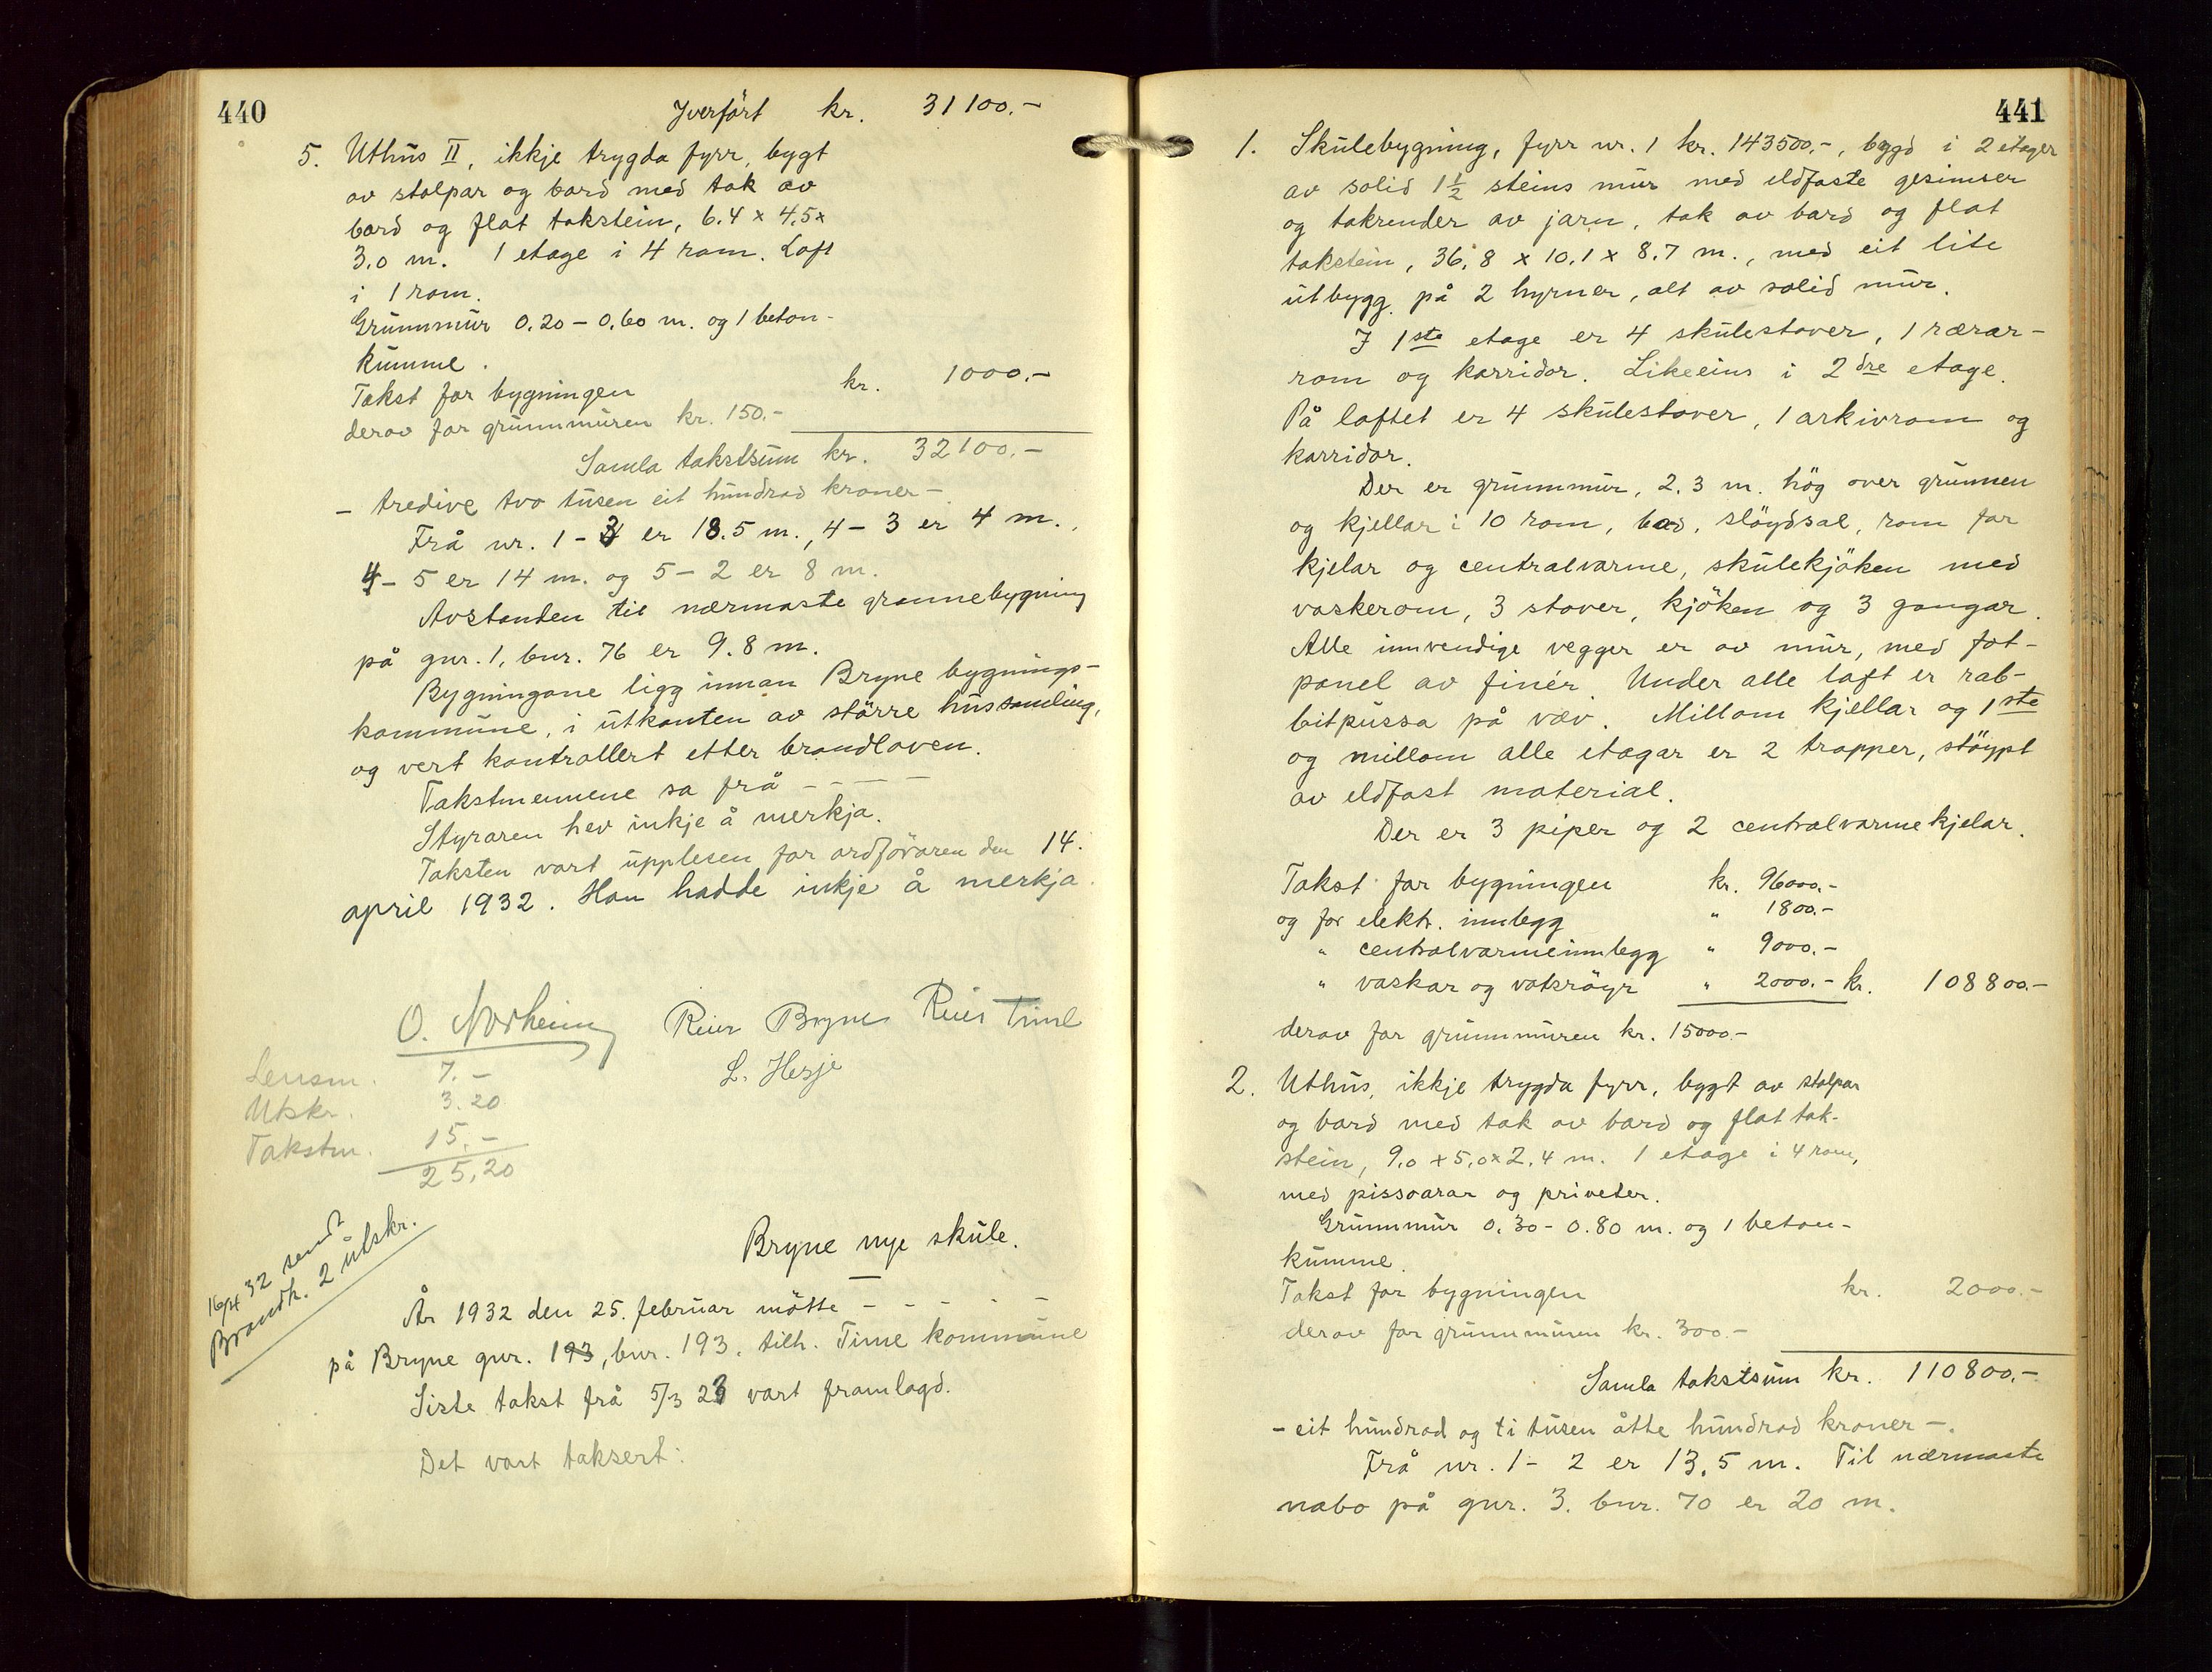 440
Yverfört kr. 31100.-
5. Uthus II, ikkje trygda fyrr, bygt
av stolpar og bord med tak av
bord og flat takstein, 6.4 x 4.5 x
3.0 m. 1 etage i 4 rom. Loft
i 1 rom.
Grunnmur 0.20 - 0.60 m. og 1 beton-
kumme.
Takst for bygningen kr. 1000.-
derav for grunnmuren kr. 150.-
Samla takstsum kr. 32100.-
- tredive tvo tusen eit hundrad kroner -
Frå nr. 1 - 3 er 18.5 m., 4 - 3 er 4 m.,
4 - 5 er 14 m. og 5 - 2 er 8 m.
Avstanden til nærmaste grannebygning
på gnr. 1, bnr. 76 er 9.8 m.
Bygningane ligg innan Bryne bygnings-
kommune, i utkanten av större hussamling,
og vert kontrollert etter brandloven.
Takstmennene sa frå - - - -
Styraren hev inkje å merkja.
Taksten vart upplesen for ordföraren den 14.
april 1932. Han hadde inkje å merkja.
O. Norheim Reier Bryne Reier Time
L. Hesje
Lensm. 7.-
Utskr. 3.20
Takstm. 15.-
25,20
16/4 32 send
Brandk. 2 utskr.
Bryne nye skule.
År 1932 den 25. februar mötte - - - - -
på Bryne gnr. 193, bnr. 193, tilh. Time kommune
Siste takst frå 5/3 23 vart framlagd.
Det vart taksert:
441
1. Skulebygning, fyrr nr. 1 kr. 143500,-, bygd i 2 etager
av solid 1 1/2 steins mur med eldfaste gesimser
og takrender av jarn, tak av bord og flat
takstein, 36.8 x 10.1 x 8.7 m., med eit lite
utbygg på 2 hyrner, alt av solid mur.
I 1ste etage er 4 skulestover, 1 lærar-
rom og korridor. Likeeins i 2dre etage.
På loftet er 4 skulestover, 1 arkivrom og
korridor.
Der er grunnmur, 2.3 m. hög over grunnen
og kjellar i 10 rom, bad, slöydsal, rom for
kjelar og centralvarme, skulekjöken med
vaskerom, 3 stover, kjöken og 3 gangar.
Alle innvendige vegger er av mur, med fot-
panel av finér. Under alle loft er rab-
bitpussa på væv. Millom kjellar og 1ste
og millom alle etagar er 2 trapper, stöypt
av eldfast material.
Der er 3 piper og 2 centralvarmekjelar.
Takst for bygningen kr. 96000.-
og for elektr. innlegg " 1800.-
" centralvarmeinnlegg " 9000.-
" vaskar og vatsröyr " 2000.- kr. 108800.-
derav for grunnmuren kr. 15000.-
2. Uthus, ikkje trygda fyrr, bygt av stolpar
og bord med tak av bord og flat tak-
stein, 9.0 x 5.0 x 2.4 m. 1 etage i 4 rom,
med pissoarar og priveter.
Grunnmur 0.30 - 0.80 m. og 1 beton-
kumme.
Takst for bygningen kr. 2000.-
derav for grunnmuren kr. 300.-
Samla takstsum kr. 110800.-
- eit hundrad og ti tusen åtte hundrad kroner -.
Frå nr. 1 - 2 er 13.5 m. Til nærmaste
nabo på gnr. 3. bnr. 70 er 20 m.